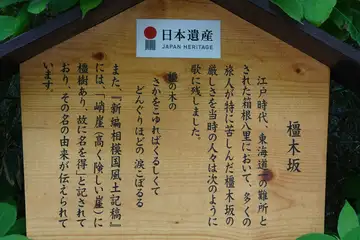 日本遺産
JAPAN HERITAGE
橿木坂
江戸時代、東海道一の難所と
された箱根八里において、多くの
旅人が特に苦しんだ橿木坂の
厳しさを当時の人々は次のように
歌に残しました。
樫の木の
さかをこゆればくるしくて
どんぐりほどの涙こぼるる
また、『新編相模国風土記稿』
には、「峭崖(高く険しい崖)に
橿樹あり、故に名を得」と記されて
おり、その名の由来が伝えられて
います。